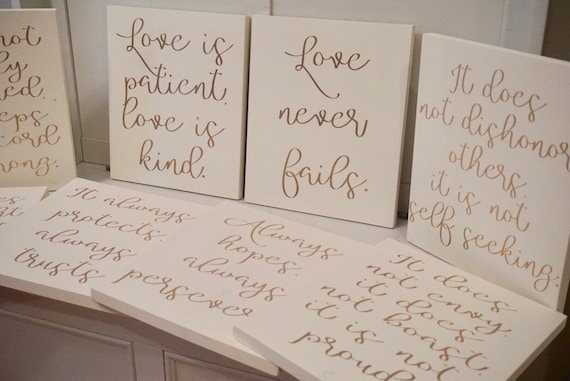 not
Love is
patient.
love is
kind.
Love
never
fails.
It does
not dishonor
others.
it is not
self seeking.
It always
protects.
always
trusts
Always
hopes.
always
persever
It does
not envy.
it does
not boast.
it is not
proud.